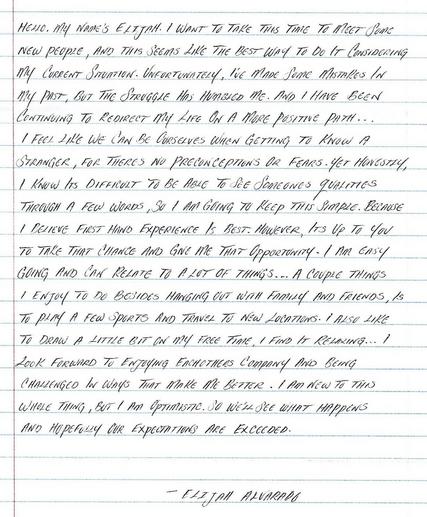 Hello. My name's Elijah. I want to take this time to meet some
new people, and this seems like the best way to do it considering
my current situation. Unfortunately, I've made some mistakes in
my past, but the struggle has humbled me. And I have been
continuing to redirect my life on a more positive path...
I feel like we can be ourselves when getting to know a
stranger, for theres no preconceptions or fears. Yet honestly,
I know its difficult to be able to see someones qualities
through a few words, so I am going to keep this simple. Because
I believe first hand experience is best. However, its up to you
to take that chance and give me that opportunity. I am easy
going and can relate to a lot of things... A couple things
I enjoy to do besides hanging out with family and friends, is
to play a few sports and travel to new locations. I also like
to draw a little bit on my free time, I find it relaxing... I
look forward to enjoying eachothers company and being
challenged in ways that make me better. I am new to this
whole thing, but I am optimistic. So we'll see what happens
and hopefully our expectations are exceeded.
- Elijah Alvarado